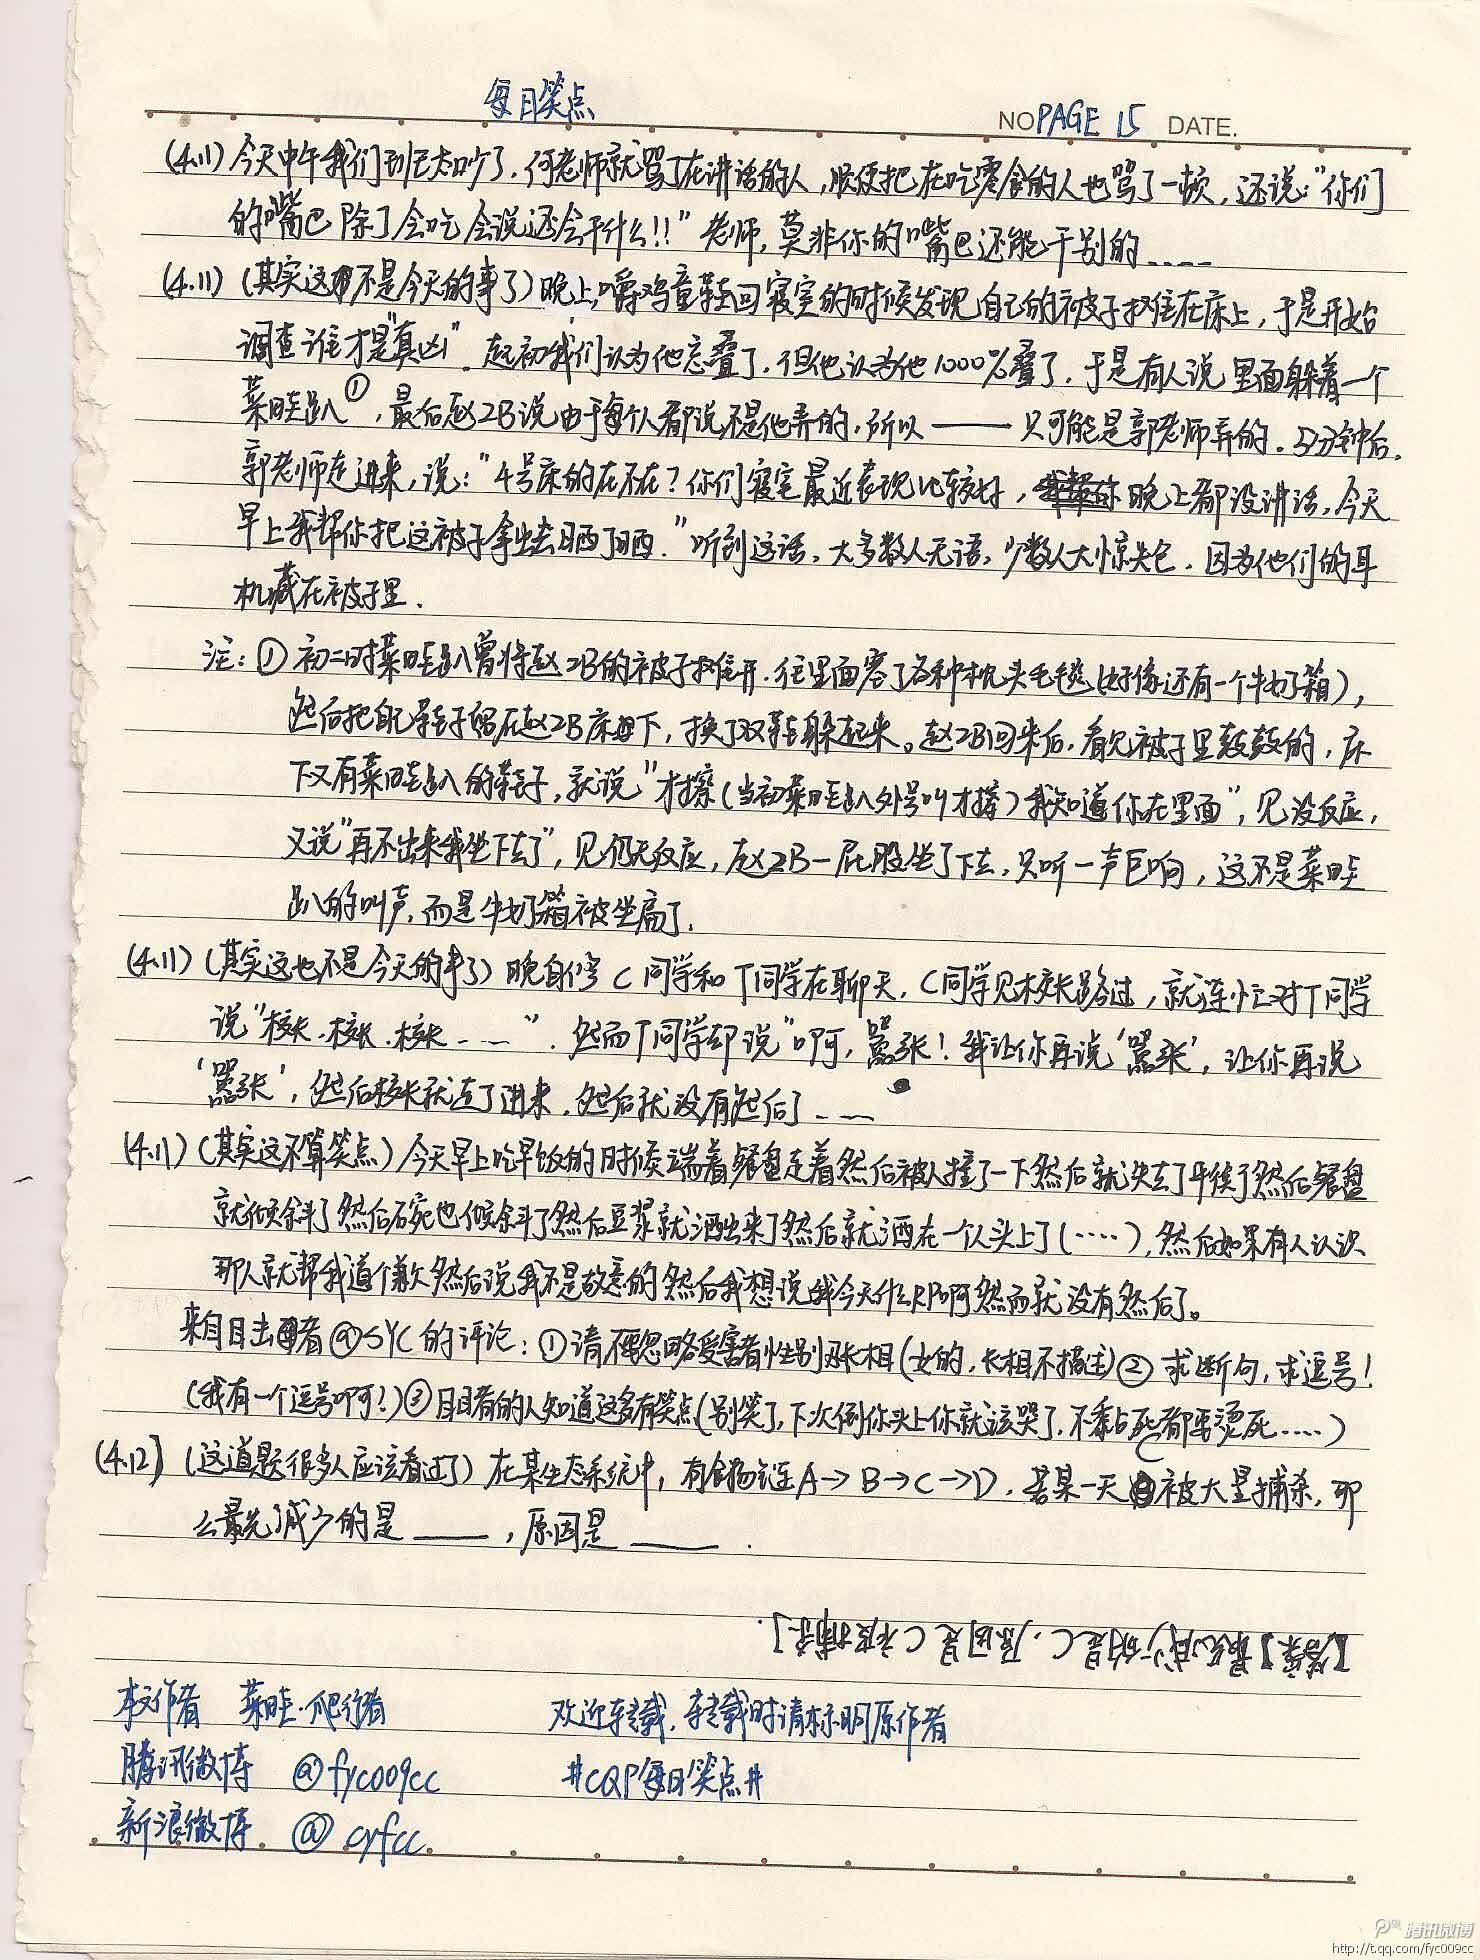 每日笑点
NO PAGE 15 DATE.
(4.11) 今天中午我们班无太吵了，何老师就骂了在讲话的人，顺便把在吃零食的人也骂了一顿，还说："你们
的嘴巴除了会吃会说还会干什么!!" 老师，莫非你的嘴巴还能干别的……
(4.11) (其实这不是今天的事了) 晚上，嚼鸡童鞋回寝室的时候发现自己的被子堆在床上，于是开始
调查谁才是"真凶"。起初我们认为他忘叠了，但他认为他1000%叠了，于是有人说里面躲着一个
菜畦趴①，最后赵2B说由于每个人都说不是他弄的，所以——只可能是郭老师弄的。5分钟后，
郭老师走进来，说："4号床的在不在？你们寝室最近表现比较好，晚上都没讲话，今天
早上我帮你把这被子拿出去晒了晒。"听到这话，大多数人无语，少数人大惊失色，因为他们的耳
机藏在被子里．
注：① 初二时菜畦趴曾将赵2B的被子堆开，往里面塞了各种枕头毛毯(好像还有一个牛奶箱)，
然后把自己鞋子留在赵2B床下，换了双鞋躲起来。赵2B回来后，看见被子里鼓鼓的，床
下又有菜畦趴的鞋子，就说"才擦(当初菜畦趴外号叫才擦)我知道你在里面"，见没反应，
又说"再不出来我坐下去了"，见仍无反应，赵2B一屁股坐了下去，只听一声巨响，这不是菜畦
趴的叫声，而是牛奶箱被坐扁了．
(4.11) (其实这也不是今天的事了) 晚自修 C同学和T同学在聊天，C同学见校长路过，就连忙对T同学
说"校长、校长、校长……"．然而T同学却说"啊，嚣张！我让你再说'嚣张'，让你再说
'嚣张'，然后校长就走了进来，然后就没有然后了……
(4.11) (其实这不算笑点) 今天早上吃早饭的时候端着餐盘走着然后被人撞了一下然后就失去了平衡了然后餐盘
就倾斜了然后碗也倾斜了然后豆浆就洒出来了然后就洒在一个人头上了(……)，然后如果有人认识
那人就帮我道个歉然后说我不是故意的然后我想说我今天什么RP啊然而就没有然后了。
来自目击者@SYC的评论：①请不要忽略受害者性别及长相(女的，长相不描述)②求断句，求逗号！
(我有一个逗号啊！)③目睹的人知道这多有笑点(别笑了，下次倒你头上你就该哭了，不黏死都要烫死……)
(4.12) (这道题很多人应该看过了) 在某生态系统中，有食物链A→B→C→D，若某一天C被大量捕杀，那
么最先减少的是____，原因是____．
【答案】最先减少的是C，原因是C被捕杀．
本文作者 菜畦·爬行者 欢迎转载，转载时请标明原作者
腾讯微博 @fyc009cc #CQP每日笑点#
新浪微博 @cyfcc
腾讯微博
http://t.qq.com/fyc009cc